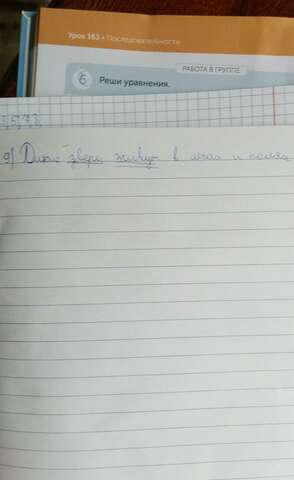 Урок 163 • Последовательности
РАБОТА В ГРУППЕ
6 Реши уравнения.
9) Дикие звери живут в лесах и полях